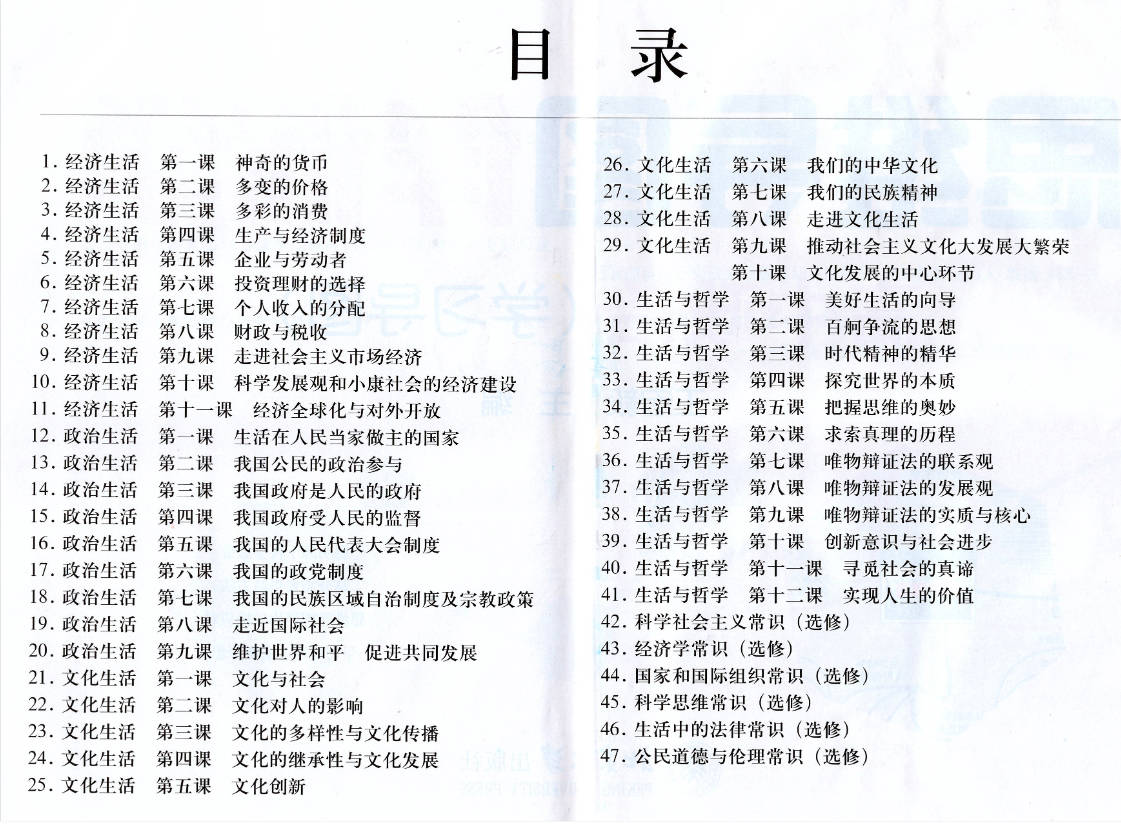 目 录
1. 经济生活 第一课 神奇的货币
2. 经济生活 第二课 多变的价格
3. 经济生活 第三课 多彩的消费
4. 经济生活 第四课 生产与经济制度
5. 经济生活 第五课 企业与劳动者
6. 经济生活 第六课 投资理财的选择
7. 经济生活 第七课 个人收入的分配
8. 经济生活 第八课 财政与税收
9. 经济生活 第九课 走进社会主义市场经济
10. 经济生活 第十课 科学发展观和小康社会的经济建设
11. 经济生活 第十一课 经济全球化与对外开放
12. 政治生活 第一课 生活在人民当家做主的国家
13. 政治生活 第二课 我国公民的政治参与
14. 政治生活 第三课 我国政府是人民的政府
15. 政治生活 第四课 我国政府受人民的监督
16. 政治生活 第五课 我国的人民代表大会制度
17. 政治生活 第六课 我国的政党制度
18. 政治生活 第七课 我国的民族区域自治制度及宗教政策
19. 政治生活 第八课 走近国际社会
20. 政治生活 第九课 维护世界和平 促进共同发展
21. 文化生活 第一课 文化与社会
22. 文化生活 第二课 文化对人的影响
23. 文化生活 第三课 文化的多样性与文化传播
24. 文化生活 第四课 文化的继承性与文化发展
25. 文化生活 第五课 文化创新
26. 文化生活 第六课 我们的中华文化
27. 文化生活 第七课 我们的民族精神
28. 文化生活 第八课 走进文化生活
29. 文化生活 第九课 推动社会主义文化大发展大繁荣
第十课 文化发展的中心环节
30. 生活与哲学 第一课 美好生活的向导
31. 生活与哲学 第二课 百舸争流的思想
32. 生活与哲学 第三课 时代精神的精华
33. 生活与哲学 第四课 探究世界的本质
34. 生活与哲学 第五课 把握思维的奥妙
35. 生活与哲学 第六课 求索真理的历程
36. 生活与哲学 第七课 唯物辩证法的联系观
37. 生活与哲学 第八课 唯物辩证法的发展观
38. 生活与哲学 第九课 唯物辩证法的实质与核心
39. 生活与哲学 第十课 创新意识与社会进步
40. 生活与哲学 第十一课 寻觅社会的真谛
41. 生活与哲学 第十二课 实现人生的价值
42. 科学社会主义常识（选修）
43. 经济学常识（选修）
44. 国家和国际组织常识（选修）
45. 科学思维常识（选修）
46. 生活中的法律常识（选修）
47. 公民道德与伦理常识（选修）